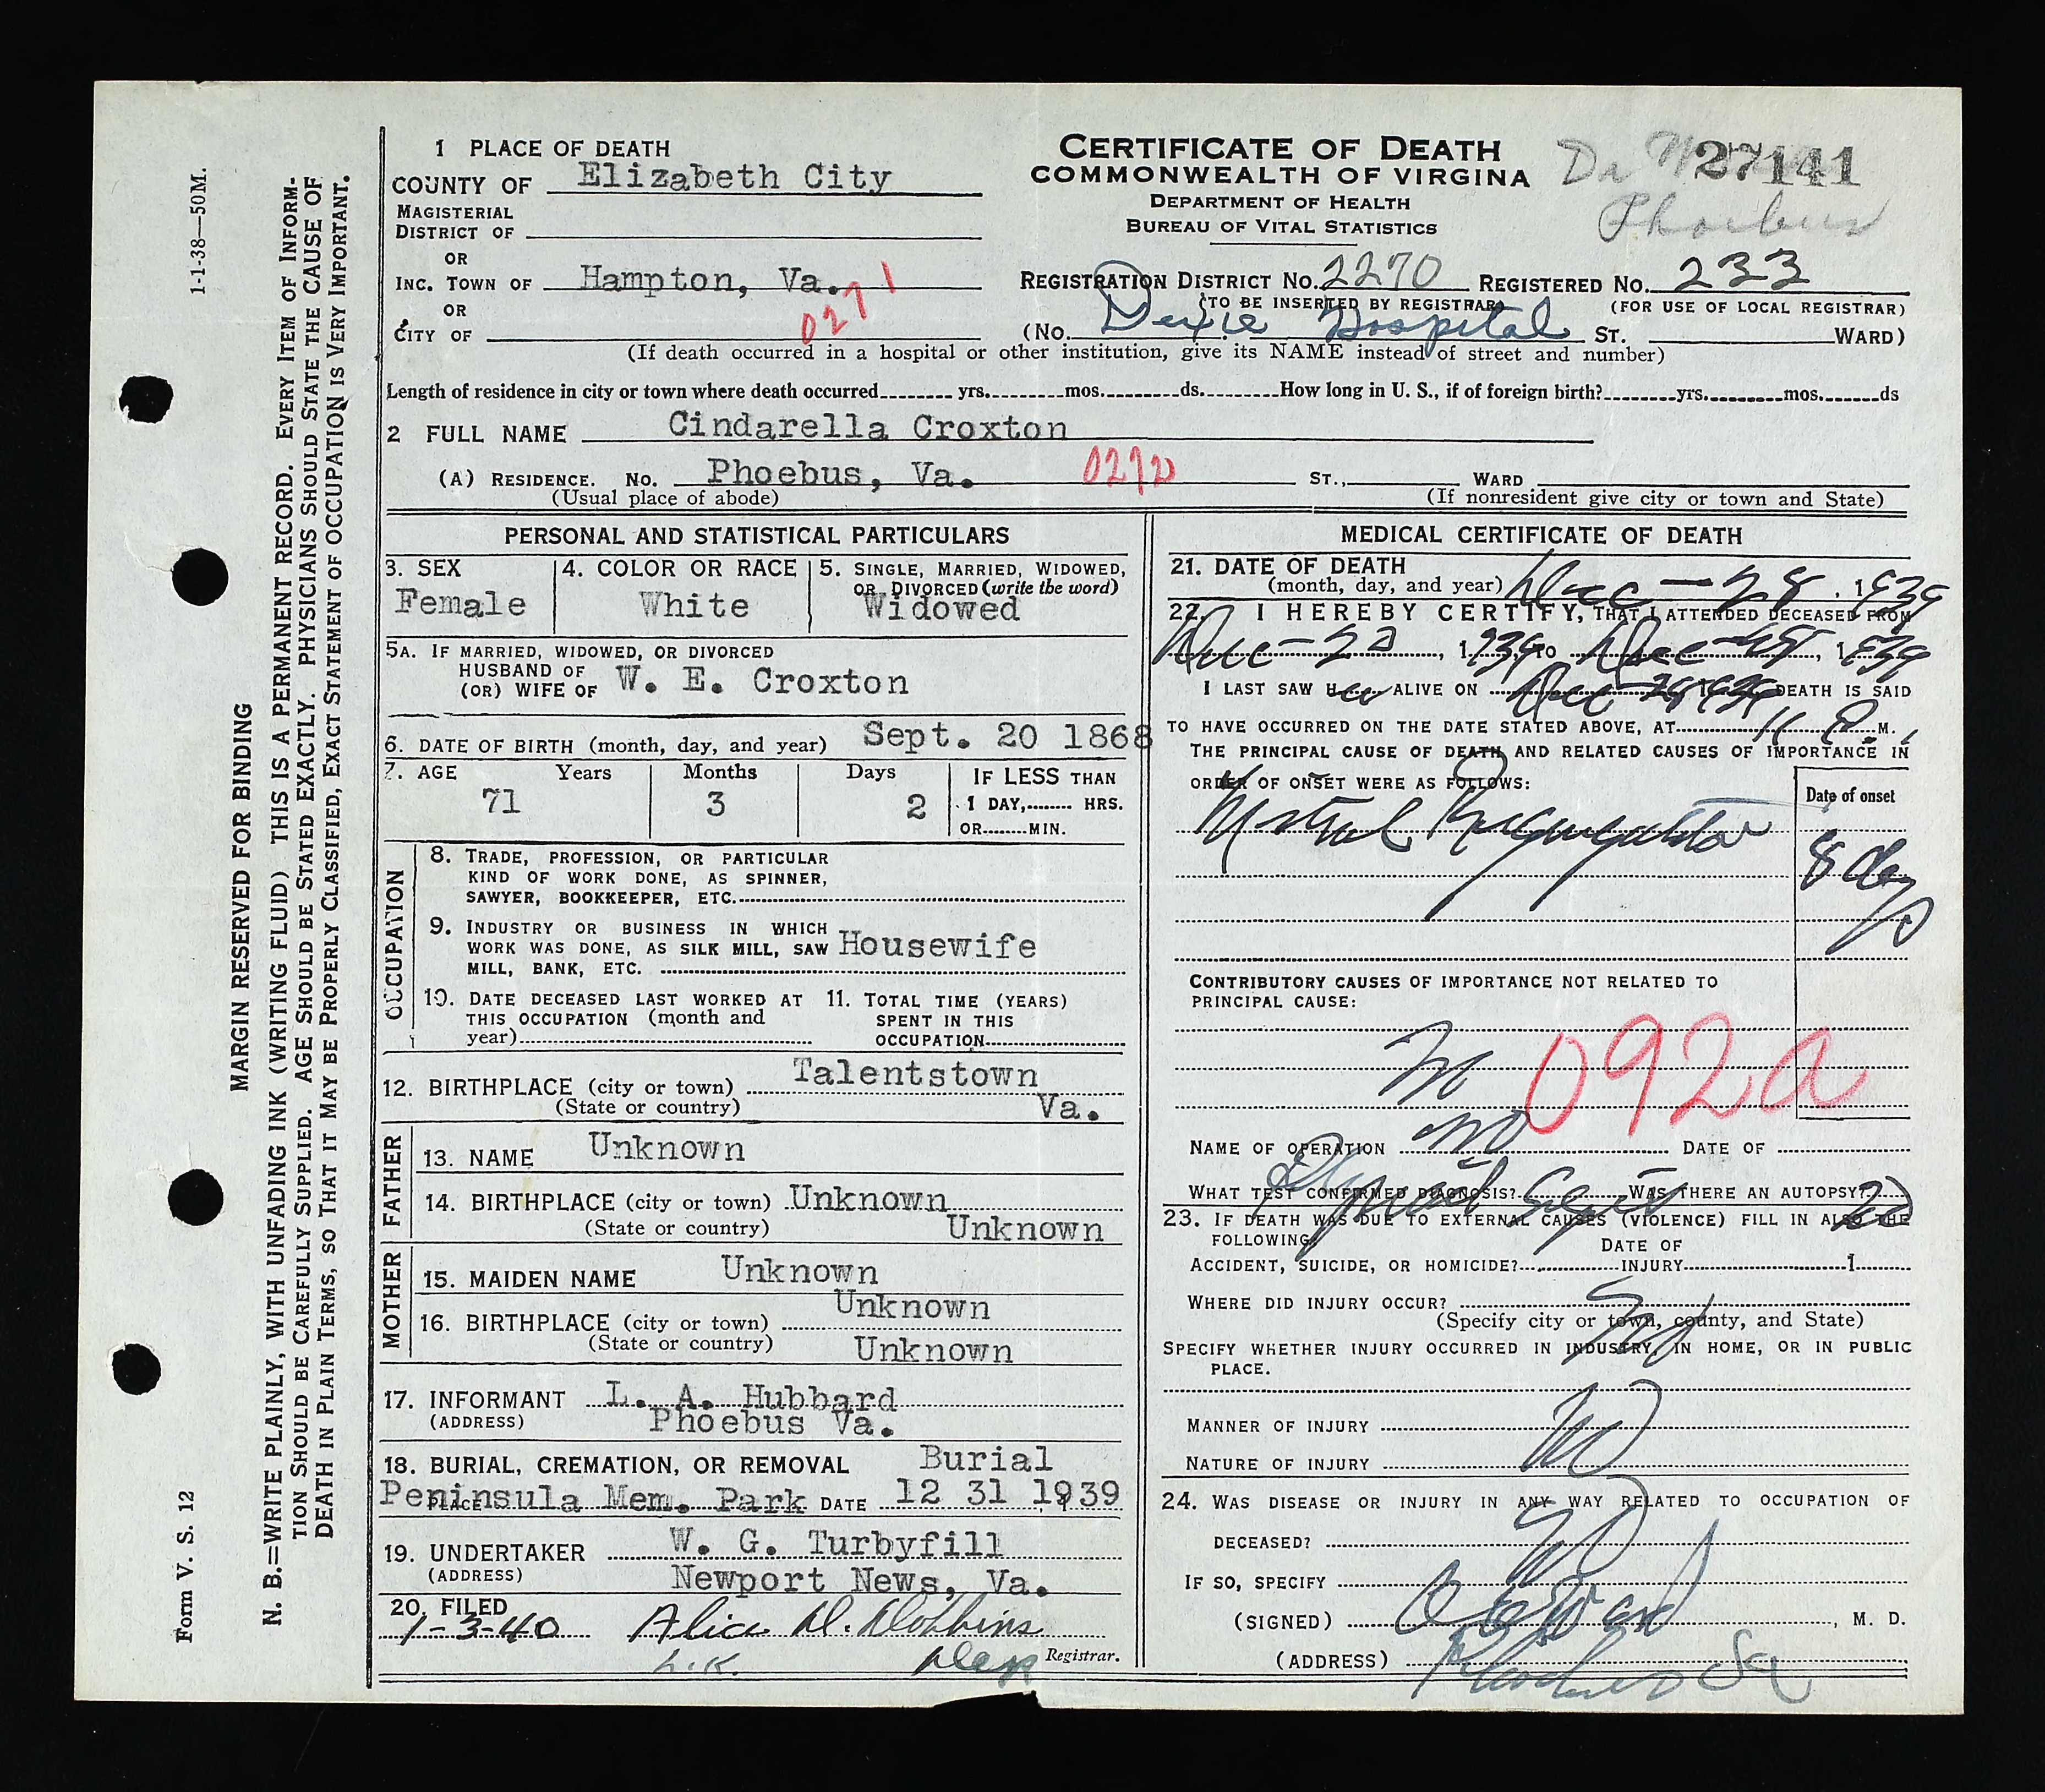 1-1-38—50M.
MARGIN RESERVED FOR BINDING
N. B.=WRITE PLAINLY, WITH UNFADING INK (WRITING FLUID) THIS IS A PERMANENT RECORD. EVERY ITEM OF INFORM-
TION SHOULD BE CAREFULLY SUPPLIED. AGE SHOULD BE STATED EXACTLY. PHYSICIANS SHOULD STATE THE CAUSE OF
DEATH IN PLAIN TERMS, SO THAT IT MAY BE PROPERLY CLASSIFIED, EXACT STATEMENT OF OCCUPATION IS VERY IMPORTANT.
Form V. S. 12
1 PLACE OF DEATH
COUNTY OF Elizabeth City
MAGISTERIAL
DISTRICT OF
OR
INC. TOWN OF Hampton, Va.
0271
OR
CITY OF
CERTIFICATE OF DEATH
COMMONWEALTH OF VIRGINA
DEPARTMENT OF HEALTH
BUREAU OF VITAL STATISTICS
Dr 27141
Phoebus
REGISTRATION DISTRICT NO. 2270 REGISTERED NO. 233
(TO BE INSERTED BY REGISTRAR) (FOR USE OF LOCAL REGISTRAR)
(No. Dixie Hospital ST. WARD)
(If death occurred in a hospital or other institution, give its NAME instead of street and number)
Length of residence in city or town where death occurred yrs. mos. ds. How long in U. S., if of foreign birth? yrs. mos. ds
2 FULL NAME Cindarella Croxton
(A) RESIDENCE. NO. Phoebus, Va. 0272 ST., WARD
(Usual place of abode) (If nonresident give city or town and State)
PERSONAL AND STATISTICAL PARTICULARS
3. SEX 4. COLOR OR RACE 5. SINGLE, MARRIED, WIDOWED,
OR DIVORCED (write the word)
Female White Widowed
5A. IF MARRIED, WIDOWED, OR DIVORCED
HUSBAND OF
(OR) WIFE OF W. E. Croxton
6. DATE OF BIRTH (month, day, and year) Sept. 20 1868
7. AGE Years Months Days IF LESS THAN
71 3 2 1 DAY, HRS.
OR MIN.
OCCUPATION
8. TRADE, PROFESSION, OR PARTICULAR
KIND OF WORK DONE, AS SPINNER,
SAWYER, BOOKKEEPER, ETC.
9. INDUSTRY OR BUSINESS IN WHICH
WORK WAS DONE, AS SILK MILL, SAW Housewife
MILL, BANK, ETC.
10. DATE DECEASED LAST WORKED AT 11. TOTAL TIME (YEARS)
THIS OCCUPATION (month and SPENT IN THIS
year) OCCUPATION
12. BIRTHPLACE (city or town) Talentstown
(State or country) Va.
FATHER
13. NAME Unknown
14. BIRTHPLACE (city or town) Unknown
(State or country) Unknown
MOTHER
15. MAIDEN NAME Unknown
16. BIRTHPLACE (city or town) Unknown
(State or country) Unknown
17. INFORMANT L. A. Hubbard
(ADDRESS) Phoebus Va.
18. BURIAL, CREMATION, OR REMOVAL Burial
PLACE Peninsula Mem. Park DATE 12 31 1939
19. UNDERTAKER W. G. Turbyfill
(ADDRESS) Newport News, Va.
20. FILED
1-3-40 Alice D. Dobbins
L.K. Dep Registrar.
MEDICAL CERTIFICATE OF DEATH
21. DATE OF DEATH
(month, day, and year) Dec — 28, 1939
22. I HEREBY CERTIFY, THAT I ATTENDED DECEASED FROM
Dec — 1939, TO Dec 1939
I LAST SAW Her ALIVE ON Dec 1939 DEATH IS SAID
TO HAVE OCCURRED ON THE DATE STATED ABOVE, AT 11 P. M.
THE PRINCIPAL CAUSE OF DEATH AND RELATED CAUSES OF IMPORTANCE IN
ORDER OF ONSET WERE AS FOLLOWS:
Date of onset
Mitral Regurgitation
8 days
CONTRIBUTORY CAUSES OF IMPORTANCE NOT RELATED TO
PRINCIPAL CAUSE:
No
092a
NAME OF OPERATION no DATE OF
WHAT TEST CONFIRMED DIAGNOSIS? Physical Signs WAS THERE AN AUTOPSY? No
23. IF DEATH WAS DUE TO EXTERNAL CAUSES (VIOLENCE) FILL IN ALSO THE
FOLLOWING:
DATE OF
ACCIDENT, SUICIDE, OR HOMICIDE? INJURY 1
WHERE DID INJURY OCCUR?
(Specify city or town, county, and State)
SPECIFY WHETHER INJURY OCCURRED IN INDUSTRY, IN HOME, OR IN PUBLIC
PLACE.
No
MANNER OF INJURY
No
NATURE OF INJURY
24. WAS DISEASE OR INJURY IN ANY WAY RELATED TO OCCUPATION OF
DECEASED? No
IF SO, SPECIFY
(SIGNED) , M. D.
(ADDRESS) Phoebus Va